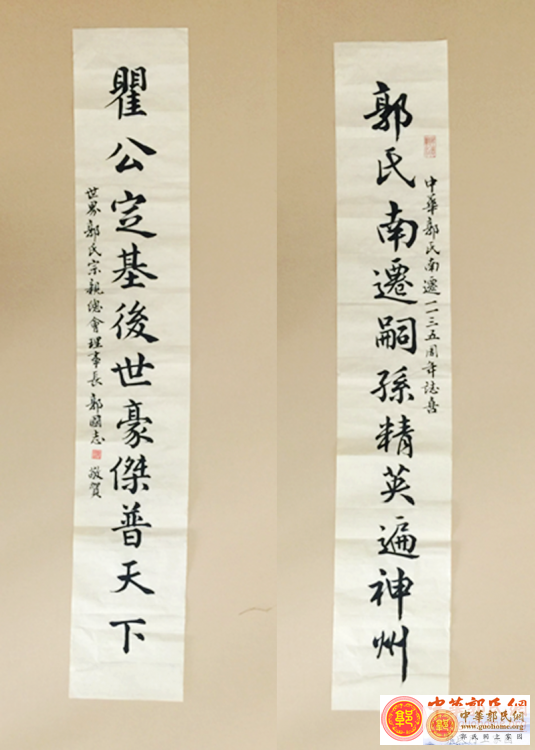 中華郭氏南遷一一三五周年誌喜
郭氏南遷嗣孫精英遍神州
瞿公定基後世豪傑普天下
世界郭氏宗親總會理事長 郭志 敬賀
中華郭氏網
中華郭氏網
郭氏网上家园